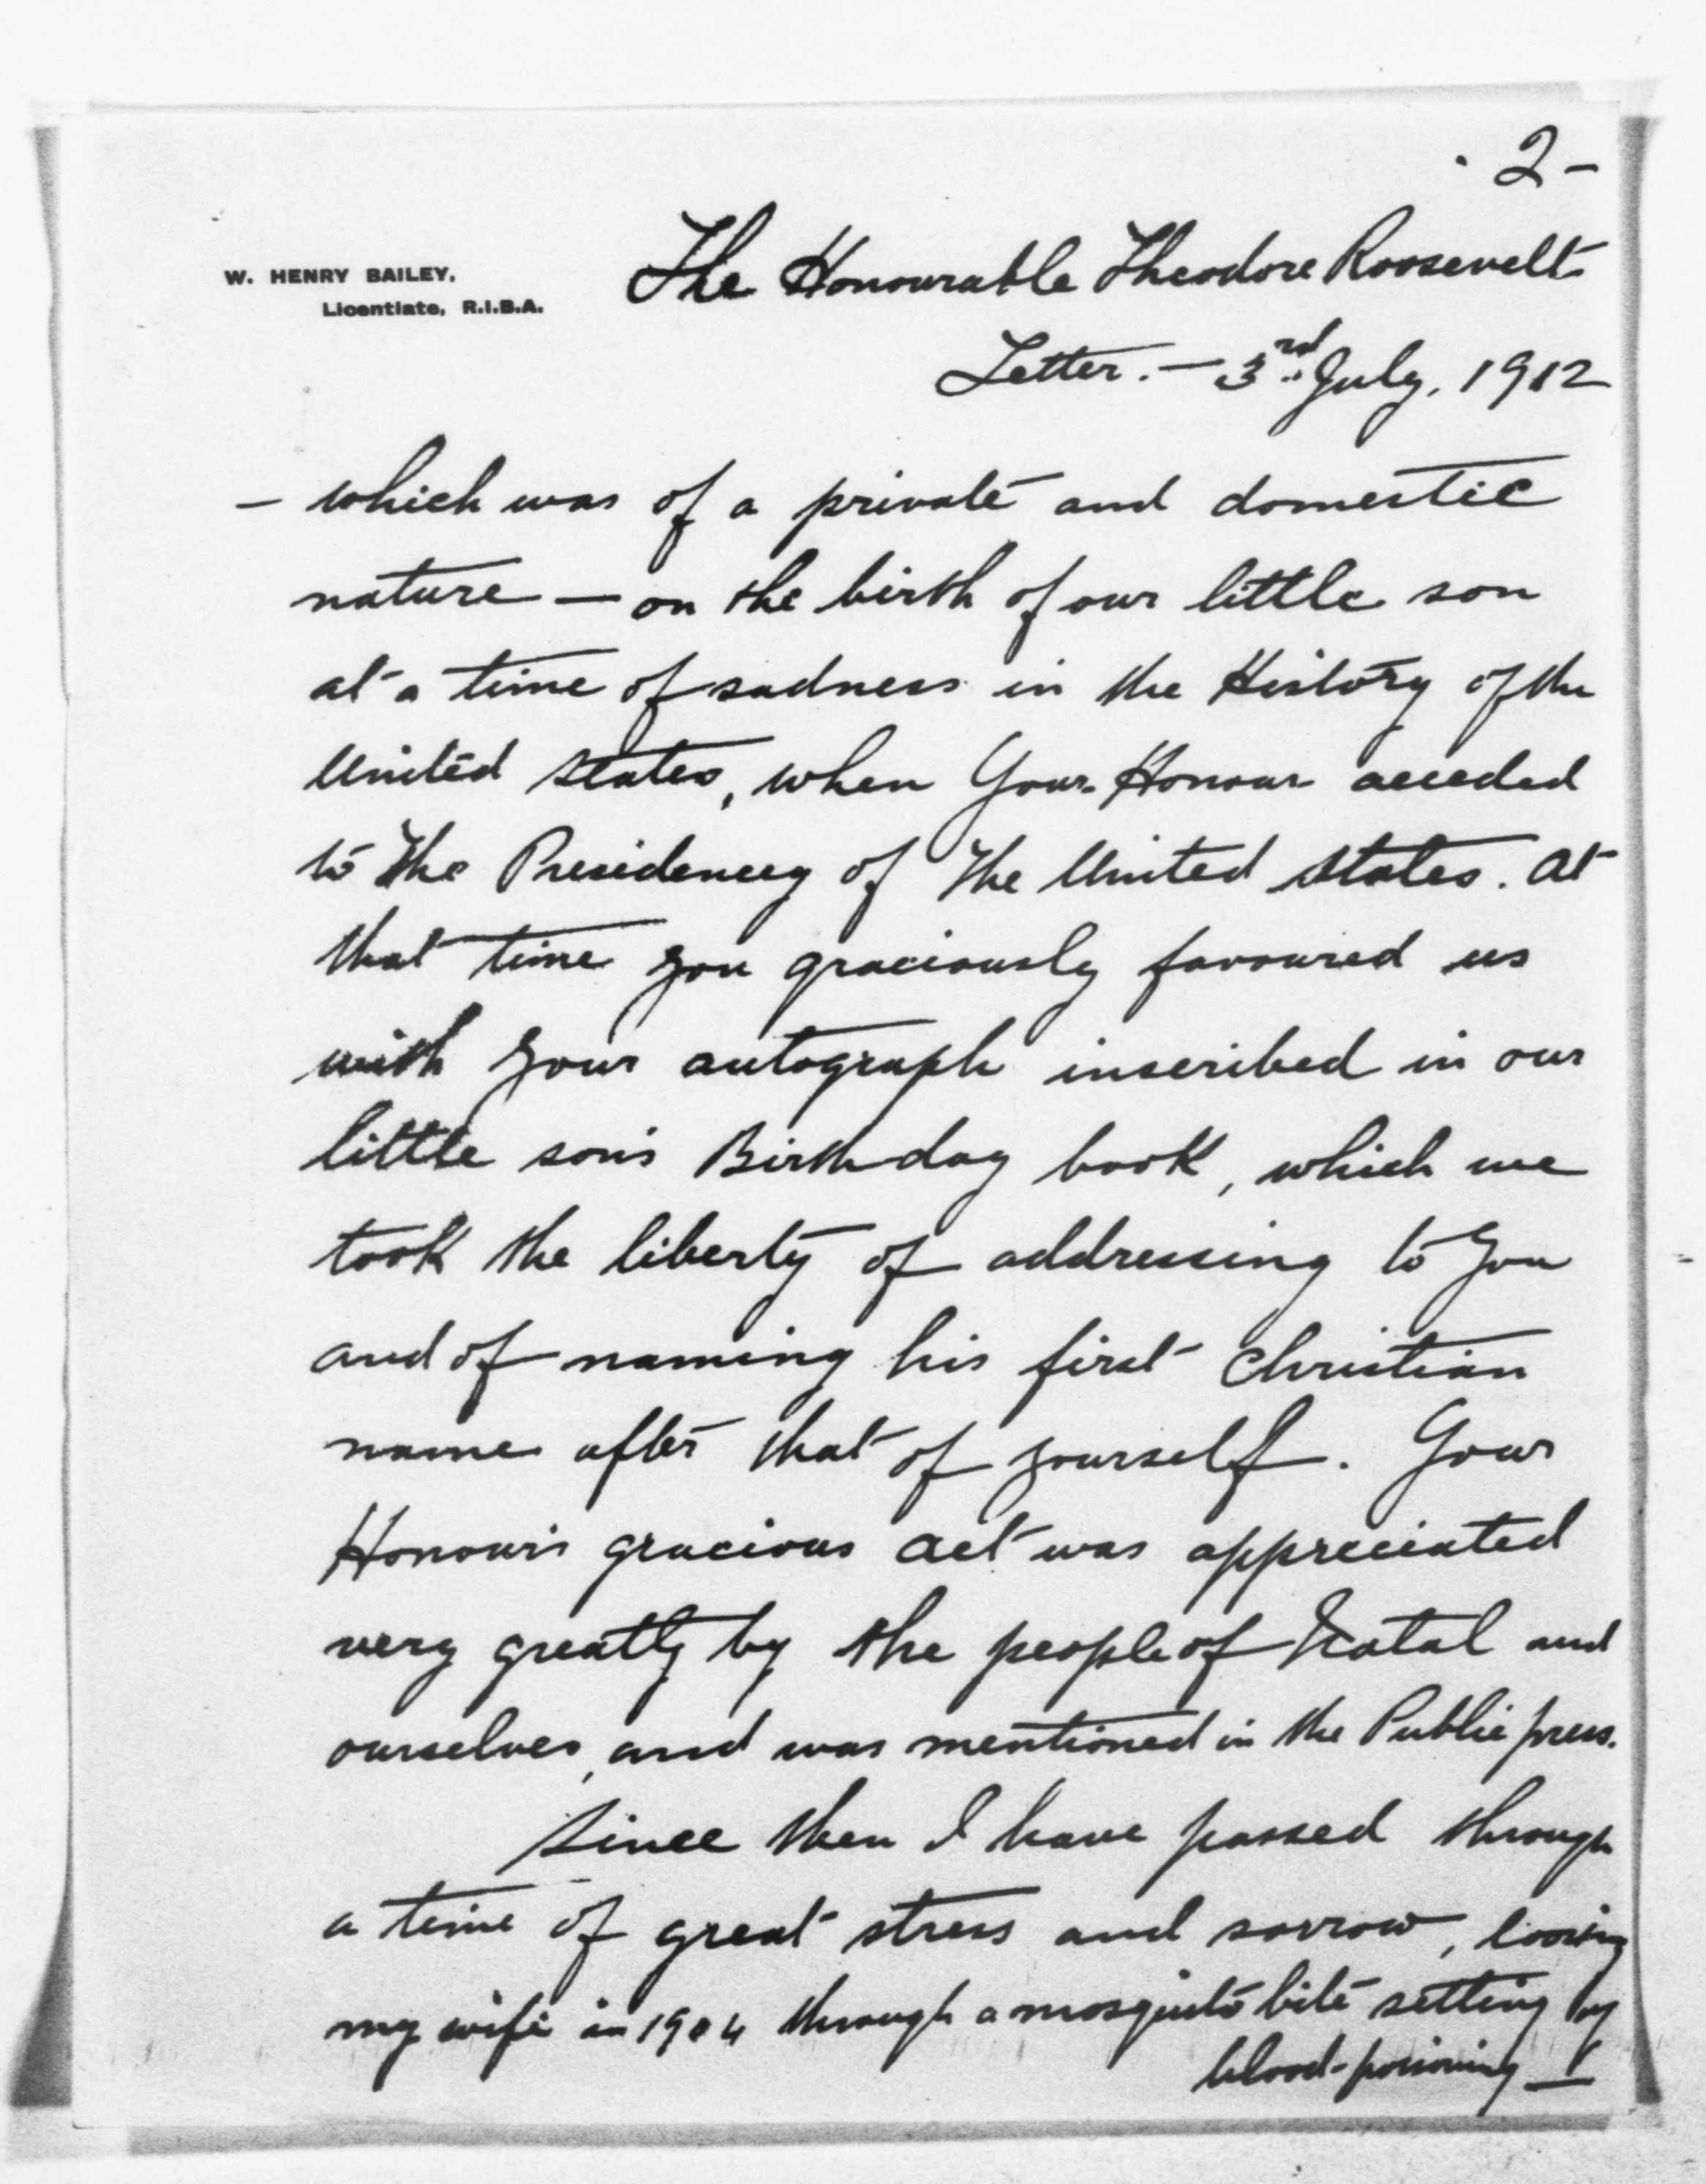 · 2 -
W. HENRY BAILEY,
Licentiate, R.I.B.A.
The Honourable Theodore Roosevelt
Letter. - 3rd July, 1912
- which was of a private and domestic
nature — on the birth of our little son
at a time of sadness in the History of the
United States, when Your Honour acceded
to the Presidency of the United States. At
that time you graciously favoured us
with your autograph inscribed in our
little son's Birthday book, which we
took the liberty of addressing to you
and of naming his first Christian
name after that of yourself. Your
Honour's gracious act was appreciated
very greatly by the people of Natal and
ourselves, and was mentioned in the Public press.
Since then I have passed through
a time of great stress and sorrow, loosing
my wife in 1904 through a mosquito bite setting up
blood-poisoning —